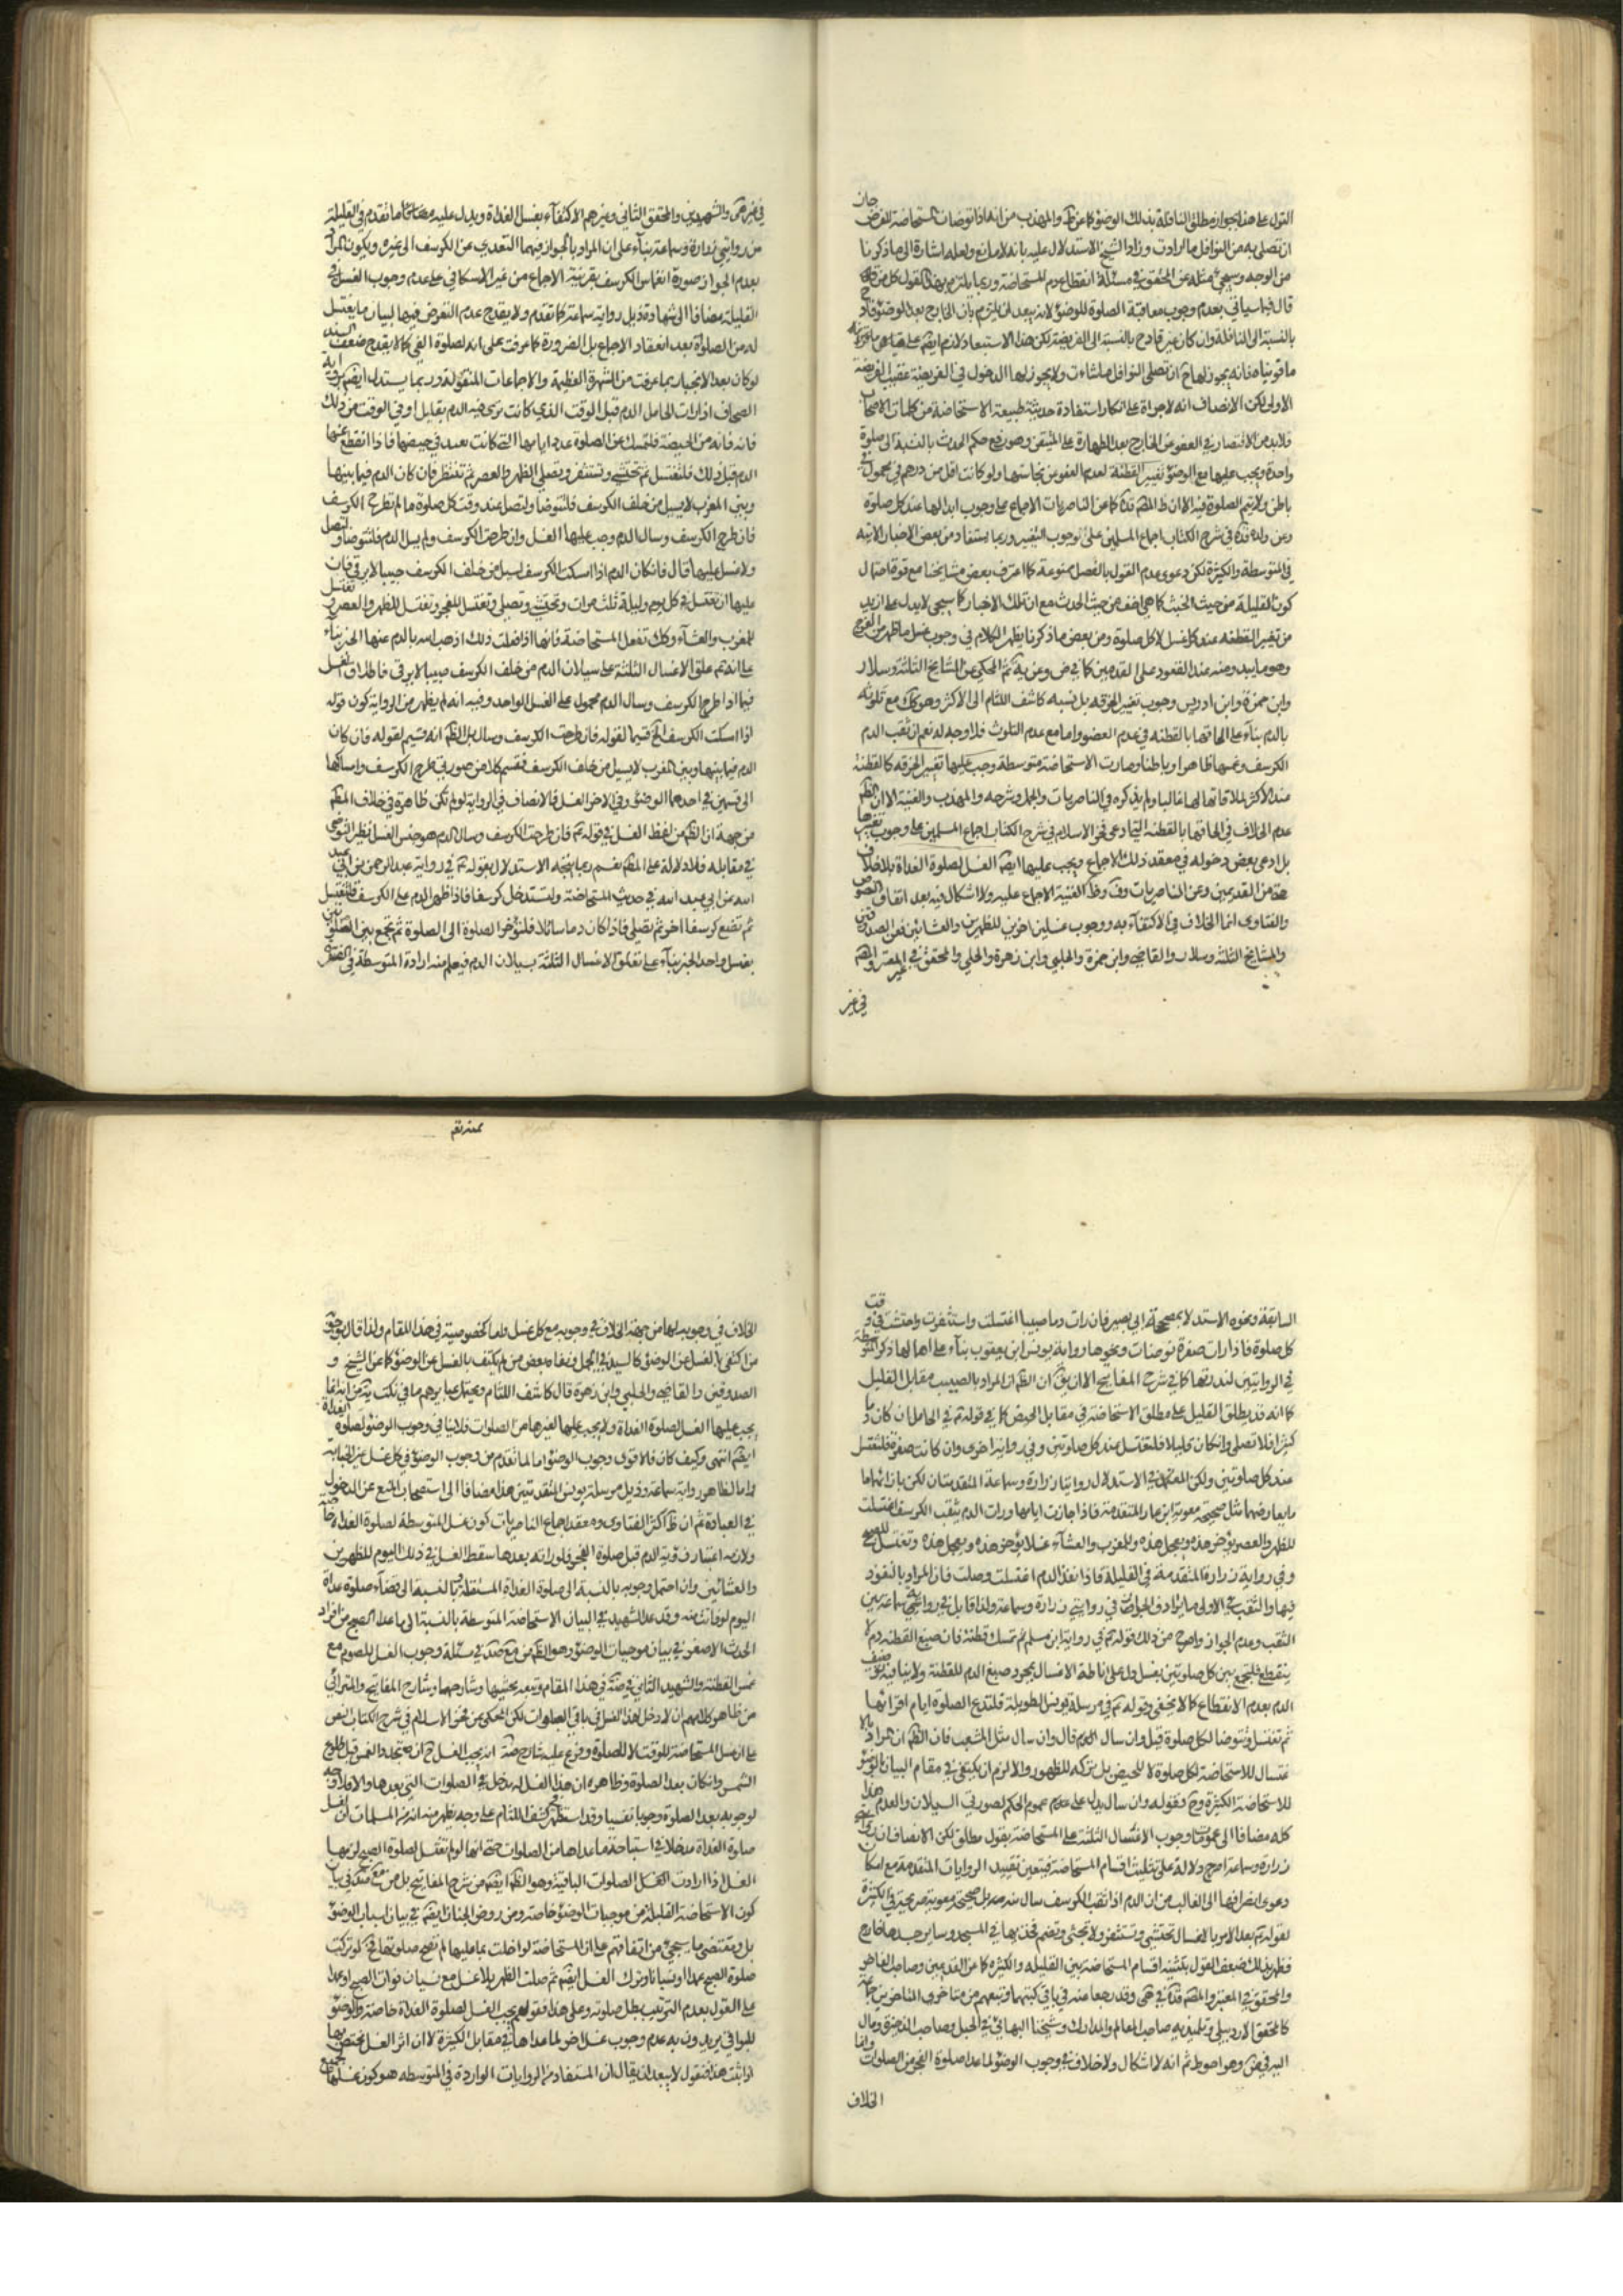 القول على هذا بجواز مطلق النافلة بذلك الوضوء كما عن ظ والمهذب من انه اذا توضات المستحاضة للفرض جاز
ان تصلى به من النوافل ما ارادت وزاد الشيخ الاستدلال عليه بانه لا مانع ولعله اشارة الى ما ذكرنا
من الوجه وسيجئ مثله عن المحقق في مسئلة انقطاع دم المستحاضة وربما يلتزم بهذا القول كل من
قال فيما سياتى بعدم وجوب معاقبة الصلوة للوضوء لانه يبعد ان يلتزم بان الخارج بعد الوضوء قادح
بالنسبة الى النافلة وان كان غير قادح بالنسبة الى الفريضة لكن هذا الاستبعاد لازم ايضا على
ما قويناه فانه يجوز لها ح ان تصلى النوافل ما شاءت ولا يجوز لها الدخول في الفريضة عقيب الفريضة
الاولى لكن الانصاف انه لا جراة على انكار استفادة حدثية طبيعة الاستحاضة من كلمات الاصحاب
فلابد من الاقتصار في العفو عن الخارج بعد الطهارة على المتيقن وهو رفع حكم الحدث بالنسبة الى صلوة
واحدة ويجب عليها مع الوضوء تغيير القطنة لعدم العفو عن نجاستها ولو كانت اقل من درهم في محمول
باطن ولا يتم الصلوة فيه الا ان ظ المصه قده كما عن الناصريات الاجماع على وجوب ابدالها عند كل صلوة
وعن ولده قده في شرح الكتاب اجماع المسلمين على وجوب التغيير وربما يستفاد من بعض الاخبار الاتيه
في المتوسطة والكثيرة لكن دعوى عدم القول بالفصل ممنوعة كما اعترف بعض مشايخنا مع قوة احتمال
كون القليلة من حيث الخبث كما هي اخف من حيث الحدث مع ان تلك الاخبار كما سيجئ لا يدل على ازيد
من تغيير القطنة عند كل غسل لا كل صلوة ومن بعض ما ذكرنا يظهر الكلام في وجوب غسل ما ظهر من الفرج
وهو ما يبدو منه عند القعود على القدمين كما في ض وعن يه ثم المحكى عن المشايخ الثلثة وسلار
وابن حمزة وابن ادريس وجوب تغيير الخرقه بل نسبه كاشف اللثام الى الاكثر وهو كك مع تلوثه
بالدم بناء على الحاقها بالقطنه في عدم العفو واما مع عدم التلوث فلا وجه له نعم ان ثقب الدم
الكرسف وغمسها ظاهرا وباطنا وصارت الاستحاضة متوسطة وجب عليها تغيير الخرقه كالقطنة
عند الاكثر لملاقاتها لها غالبا ولم يذكره في الناصريات والجمل وشرحه والمهذب والغنية الا ان الظم
عدم الخلاف في الحاقها بالقطنة التى ادعى فخر الاسلام في شرح الكتاب اجماع المسلمين على وجوب تغييرها
بل ادعى بعض دخوله في معقد ذلك الاجماع ويجب عليها ايضه الغسل لصلوة الغداة بلا خلاف
من القديمين وعن الناصريات وف وظ الغنية الاجماع عليه ولا اشكال فيه بعد اتفاق النصوص
والفتاوى انما الخلاف في الاكتفاء به ووجوب غسلين اخرين للظهرين والعشائين فعن الصدوقين
والمشايخ الثلثة وسلار والقاضى وابن حمزة والحلبى وابن زهرة والحلى والمحقق في غير المعتبر والمصه
في غير
في غير هى والشهيدين والمحقق الثاني وغيرهم الاكتفاء بغسل الغداة ويدل عليه مضافا ما تقدم في القليلة
من روايتى زرارة وسماعة بناء على ان المراد بالجواز فيهما التعدى عن الكرسف الى غيره ويكون المراد
بعدم الجواز صورة انغماس الكرسف بقرينة الاجماع من غير الاسكافي على عدم وجوب الغسل في
القليلة مضافا الى شهادة ذيل رواية سماعة كما تقدم ولا يقدح عدم التعرض فيهما لبيان ما يغتسل
له من الصلوة بعد انعقاد الاجماع بل الضرورة كما عرفت على انه لصلوة الفجر كما لا يقدح ضعف السند
لو كان بعد الانجبار بما عرفت من الشهرة العظيمة والاجماعات المنقولة وربما يستدل ايضه برواية
الصحاف اذا رات الحامل الدم قبل الوقت الذي كانت ترى فيه الدم بقليل او في الوقت من ذلك
فانه من الحيضة فلتمسك عن الصلوة عدد ايامها التى كانت تعتد في حيضها فاذا انقطع عنها
الدم قبل ذلك فلتغتسل ثم تحتشى وتستثفر وتصلى الظهر والعصر ثم تنتظر فان كان الدم فيما بينها
وبين المغرب لا يسيل من خلف الكرسف فلتتوضا ولتصل عند وقت كل صلوة ما لم تطرح الكرسف
فان طرح الكرسف وسال الدم وجب عليها الغسل وان طرحت الكرسف ولم يسل الدم فلتتوضا ولتصل
ولا غسل عليها قال فان كان الدم اذا امسكت الكرسف يسيل من خلف الكرسف صبيبا لا يرقى فان
عليها ان تغتسل في كل يوم وليلة ثلث مرات وتحتشى وتصلى وتغتسل للفجر وتغتسل للظهر والعصر وتغتسل
للمغرب والعشاء وكك تفعل المستحاضة فانها اذا فعلت ذلك اذهب الله بالدم عنها الخبر بناء
على انه ع علق الاغسال الثلثة على سيلان الدم من خلف الكرسف صبيبا لا يرقى فاطلاق الغسل
فيما اذا طرح الكرسف وسال الدم محمول على الغسل الواحد وفيه انه لم يظهر من الرواية كون قوله
اذا امسكت الكرسف الخ قسيما لقوله فان طرحت الكرسف وسال بل الظم انه قسيم لقوله فان كان
الدم فيما بينها وبين المغرب لا يسيل من خلف الكرسف فقسم كلا من صورتى طرح الكرسف وامساكها
الى قسمين في احدهما الوضوء وفي الاخر الغسل فالانصاف ان الرواية لو لم تكن ظاهرة في خلاف المطم
من جهة ان الظم من لفظ الغسل في قوله ع فان طرحت الكرسف وسال الدم هو جنس الغسل نظير التوضى
في مقابله فلا دلالة على المطم نعم ربما يتجه الاستدلال بقوله ع في رواية عبد الرحمن بن ابي عبد
الله عن ابى عبد الله في حديث المستحاضة ولتستدخل كرسفا فاذا ظهر الدم على الكرسف فلتغتسل
ثم تضع كرسفا اخر ثم تصلى فاذا كان دما سائلا فلتؤخر الصلوة الى الصلوة ثم تجمع بين الصلوتين
بغسل واحد الخبر بناء على تعلق الاغسال الثلثة بسيلان الدم فيعلم منه ارادة المتوسطة في الفقرة
السابقة ونحوه الاستدلال بمصححة ابى بصير فان رات دما صبيبا اغتسلت واستثفرت واحتشت في وقت
كل صلوة فاذا رات صفرة توضات ونحوها رواية يونس ابن يعقوب بناء على اهمالهما ذكر المتوسطة
في الروايتين لندرتها كما في شرح المفاتيح الا ان يق ان الظم ان المراد بالصبيب مقابل القليل
كما انه قد يطلق القليل على مطلق الاستحاضة في مقابل الحيض كما في قوله ع في الحامل ان كان دما
كثيرا فلا تصلى وان كان قليلا فلتغتسل عند كل صلوتين وفي رواية اخرى وان كانت صفرة فلتغتسل
عند كل صلوتين ولكن المعتمد في الاستدلال روايتا زرارة وسماعة المتقدمتان لكن بازائهما ما
يعارضهما مثل صحيحة معوية ابن عمار المتقدمة فاذا جازت ايامها ورات الدم يثقب الكرسف اغتسلت
للظهر والعصر تؤخر هذه وتعجل هذه وللمغرب والعشاء غسلا تؤخر هذه وتعجل هذه وتغتسل للصبح
وفي رواية زرارة المتقدمة في القليلة فاذا نفذ الدم اغتسلت وصلت فان المراد بالنفوذ
فيها والثقب في الاولى ما يرادف الجواز في روايتى زرارة وسماعة ولذا قابل في رواية سماعة بين
الثقب وعدم الجواز واصرح من ذلك قوله ع في رواية ابن مسلم ثم تمسك قطنة فان صبغ القطنة دم لا
ينقطع فلتجمع بين كل صلوتين بغسل دل على اناطة الاغسال بمجرد صبغ الدم للقطنة ولا ينافيه توصيف
الدم بعدم الانقطاع كما لا يخفى وقوله ع في مرسلة يونس الطويلة فلتدع الصلوة ايام اقرائها
ثم تغتسل وتتوضا لكل صلوة قيل وان سال الدم قال وان سال مثل المثعب فان الظم ان المراد بالا
غتسال للاستحاضة لكل صلوة لا للحيض بل تركه للظهور والا لزم ان يكتفى في مقام البيان بالوضوء
للاستحاضة الكثيرة وح فقوله وان سال يدل على عموم الحكم لصورتى السيلان والعدم هذا
كله مضافا الى عمومات وجوب الاغسال الثلثة على المستحاضة بقول مطلق لكن الانصاف ان روايتى
زرارة وسماعة اصرح دلالة على تثليث اقسام المستحاضة فيتعين تقييد الروايات المتقدمة مع امكان
دعوى انصرافها الى الغالب من ان الدم اذا ثقب الكرسف سال منه بل صحيحة معوية صريحة في الكثيرة
لقوله ع بعد الامر بالاغسال تحتشى وتستثفر ولا تحنى وتضم فخذيها في المسجد وساير جسدها خارج
فظهر بذلك ضعف القول بتثنية اقسام المستحاضة بين القليله والكثيره كما عن القديمين وصاحب الفاخر
والمحقق في المعتبر والمصه قده في هى وقد رجعا عنه في باقى كتبهما وتبعهم من متاخرى المتاخرين جماعة
كالمحقق الاردبيلى وتلميذيه صاحب المعالم والمدارك وشيخنا البهائى في الحبل وصاحب الذخيرة ومال
اليه في ض وهو احوط ثم انه لا اشكال ولا خلاف في وجوب الوضوء لما عدا صلوة الفجر من الصلوات وانما
الخلاف
الخلاف في وجوبه لها من جهة الخلاف في وجوبه مع كل غسل ولعله لا خصوصية في هذا المقام ولذا قال بوجوبه
من اكتفى بالغسل عن الوضوء كالسيد في الجمل ونفاه بعض من لم يكتف بالغسل عن الوضوء كما عن الشيخ و
الصدوقين والقاضى والحلبى وابن زهرة قال كاشف اللثام ويحتمل عبايرهم ما في نكت يه من انه انما
يجب عليها الغسل لصلوة الغداة ولا يجب عليها لغيرها من الصلوات فلا ينافي وجوب الوضوء لصلوة الغداة
ايضه انتهى وكيف كان فالاقوى وجوب الوضوء اما لما تقدم من وجوب الوضوء في كل غسل غير الجنابة
واما لظاهر رواية سماعة وذيل مرسلة يونس المتقدمتين هذا مضافا الى استصحاب المنع عن الدخول
في العبادة ثم ان ظ اكثر الفتاوى ومعقد اجماع الناصريات كون غسل المتوسطة لصلوة الغداة خاصة
ولازمه اعتبار رؤية الدم قبل صلوة الفجر فلو راته بعدها سقط الغسل في ذلك اليوم للظهرين
والعشائين وان احتمل وجوبه بالنسبة الى صلوة الغداة المستقبلة او بالنسبة الى قضاء صلوة غداة
اليوم لو فاتت منه وقد عد الشهيد في البيان الاستحاضة المتوسطة بالنسبة الى ما عدا الصبح من افراد
الحدث الاصغر في بيان موجبات الوضوء وهو الظم من مع صد في مسئلة وجوب الغسل للصوم مع
غمس القطنة والشهيد الثانى في ضه في هذا المقام وتبعه محشيها وشارحها وشارح المفاتيح والمترائى
من ظاهر كلامهم ان لا دخل لهذا الغسل في باقى الصلوات لكن المحكى عن فخر الاسلام في شرح الكتاب النص
على ان غسل المستحاضة للوقت لا للصلوة وفرع عليه شارح ضه انه يجب الغسل ح ان تجدد الغمس قبل طلوع
الشمس وان كان بعد الصلوة وظاهره ان هذا الغسل له دخل في الصلوات التى بعدها والا فلا وجه
لوجوبه بعد الصلوة وجوبا نفسيا وقد استظهر كاشف اللثام على وجه يظهر منه انه من المسلمات ان لغسل
صلوة الغداة مدخلا في استباحة ما عداها من الصلوات حتى انها لو لم تغتسل لصلوة الصبح لزمها
الغسل اذا ارادت الصلوات الباقية وهو الظم ايضه من شرح المفاتيح بل من مع صد في بيان
كون الاستحاضة القليلة من موجبات الوضوء خاصة ومن روض الجنان ايضه في بيان اسباب الوضوء
بل ومقتضى ما سيجئ من اتفاقهم على ان المستحاضة لو اخلت بما عليها لم تصح صلوتها فح لو تركت
صلوة الصبح عمدا او نسيانا وترك الغسل ايضه ثم صلت الظهر بلا غسل مع نسيان فوات الصبح او عمدا
على القول بعدم الترتيب بطل صلوتها وعلى هذا فقولهم يجب الغسل لصلوة الغداة خاصة والوضوء
للبواقي يريدون به عدم وجوب غسل اخر لما عداها في مقابل الكثيرة لا ان اثر الغسل مختص بها
اذا ثبت هذا فنقول لا يبعد ان يقال ان المستفاد من الروايات الواردة في المتوسطه هو كون غسلها لجميع